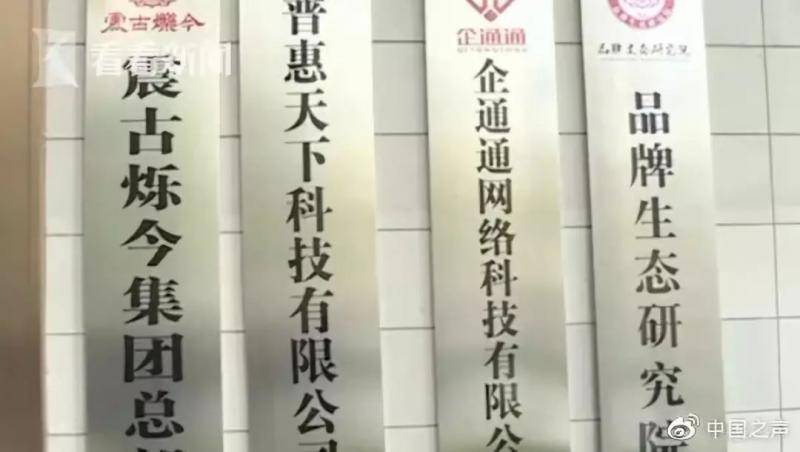 震古爍今
震古烁今集团总
普惠天下科技有限公司
企通通
QITONGTONG
企通通网络科技有限公
品牌生态研究院
品牌生态研究院
看看新闻
中国之声